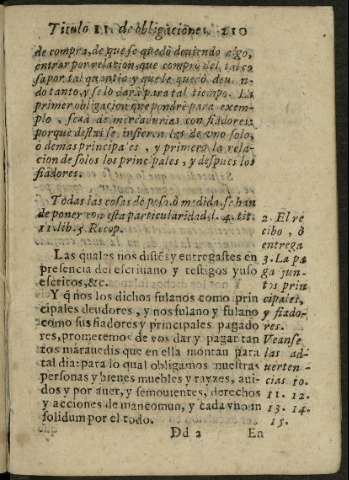 Titulo 11. de obligaciones. 210
de compra, de que se quedò deuiendo algo,
entrar por relacion, que comprò del tal co
sa por tal quantia y que le quedò deuien-
do tanto, y se lo darà para tal tiempo. La
primer obligacion que pondrè para exem-
plo, serà de mercadurias con fiadores,
porque desta se infieren las de vno solo,
ò de mas principales, y primero la rela-
cion de solos los principales, y despues los
fiadores.
Todas las cosas de peso, ò medida, se han
de poner con esta particularidad, l. 4. tit.
11. lib. 5. Recop.
Las quales nos distes y entregastes en
presencia del escriuano y testigos yuso
escritos, &c.
Y q̃ nos los dichos fulanos como prin
cipales deudores, y nos fulano y fulano
como sus fiadores y principales pagado
res, prometemos de vos dar y pagar tan
tos marauedis que en ella montan para
tal dia: para lo qual obligamos nuestras
personas y bienes muebles y rayzes, aui-
dos y por auer, y semouientes, derechos
y acciones de mancomun, y cada vno in
solidum por el todo.
2. El re
cibo, ò
entrega
3. La pa
ga jun-
tos prin
cipales,
y fiado-
res.
Veanse
las ad-
uerten-
cias 10.
11. 12.
13. 14.
15.
Dd 2 En